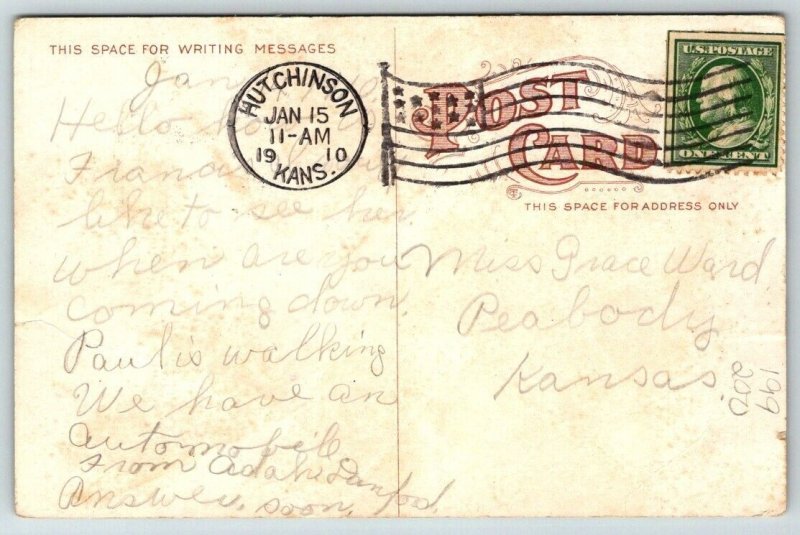 THIS SPACE FOR WRITING MESSAGES
Jan
Hello how
like to see her.
when are you
coming down.
Paul is walking
We have an
automobile
from Adah
Answer soon.
HUTCHINSON
JAN 15
11-AM
1910
KANS.
POST
CARD
U.S. POSTAGE
ONE CENT
THIS SPACE FOR ADDRESS ONLY
Miss Grace Ward
Peabody
Kansas.
199
200